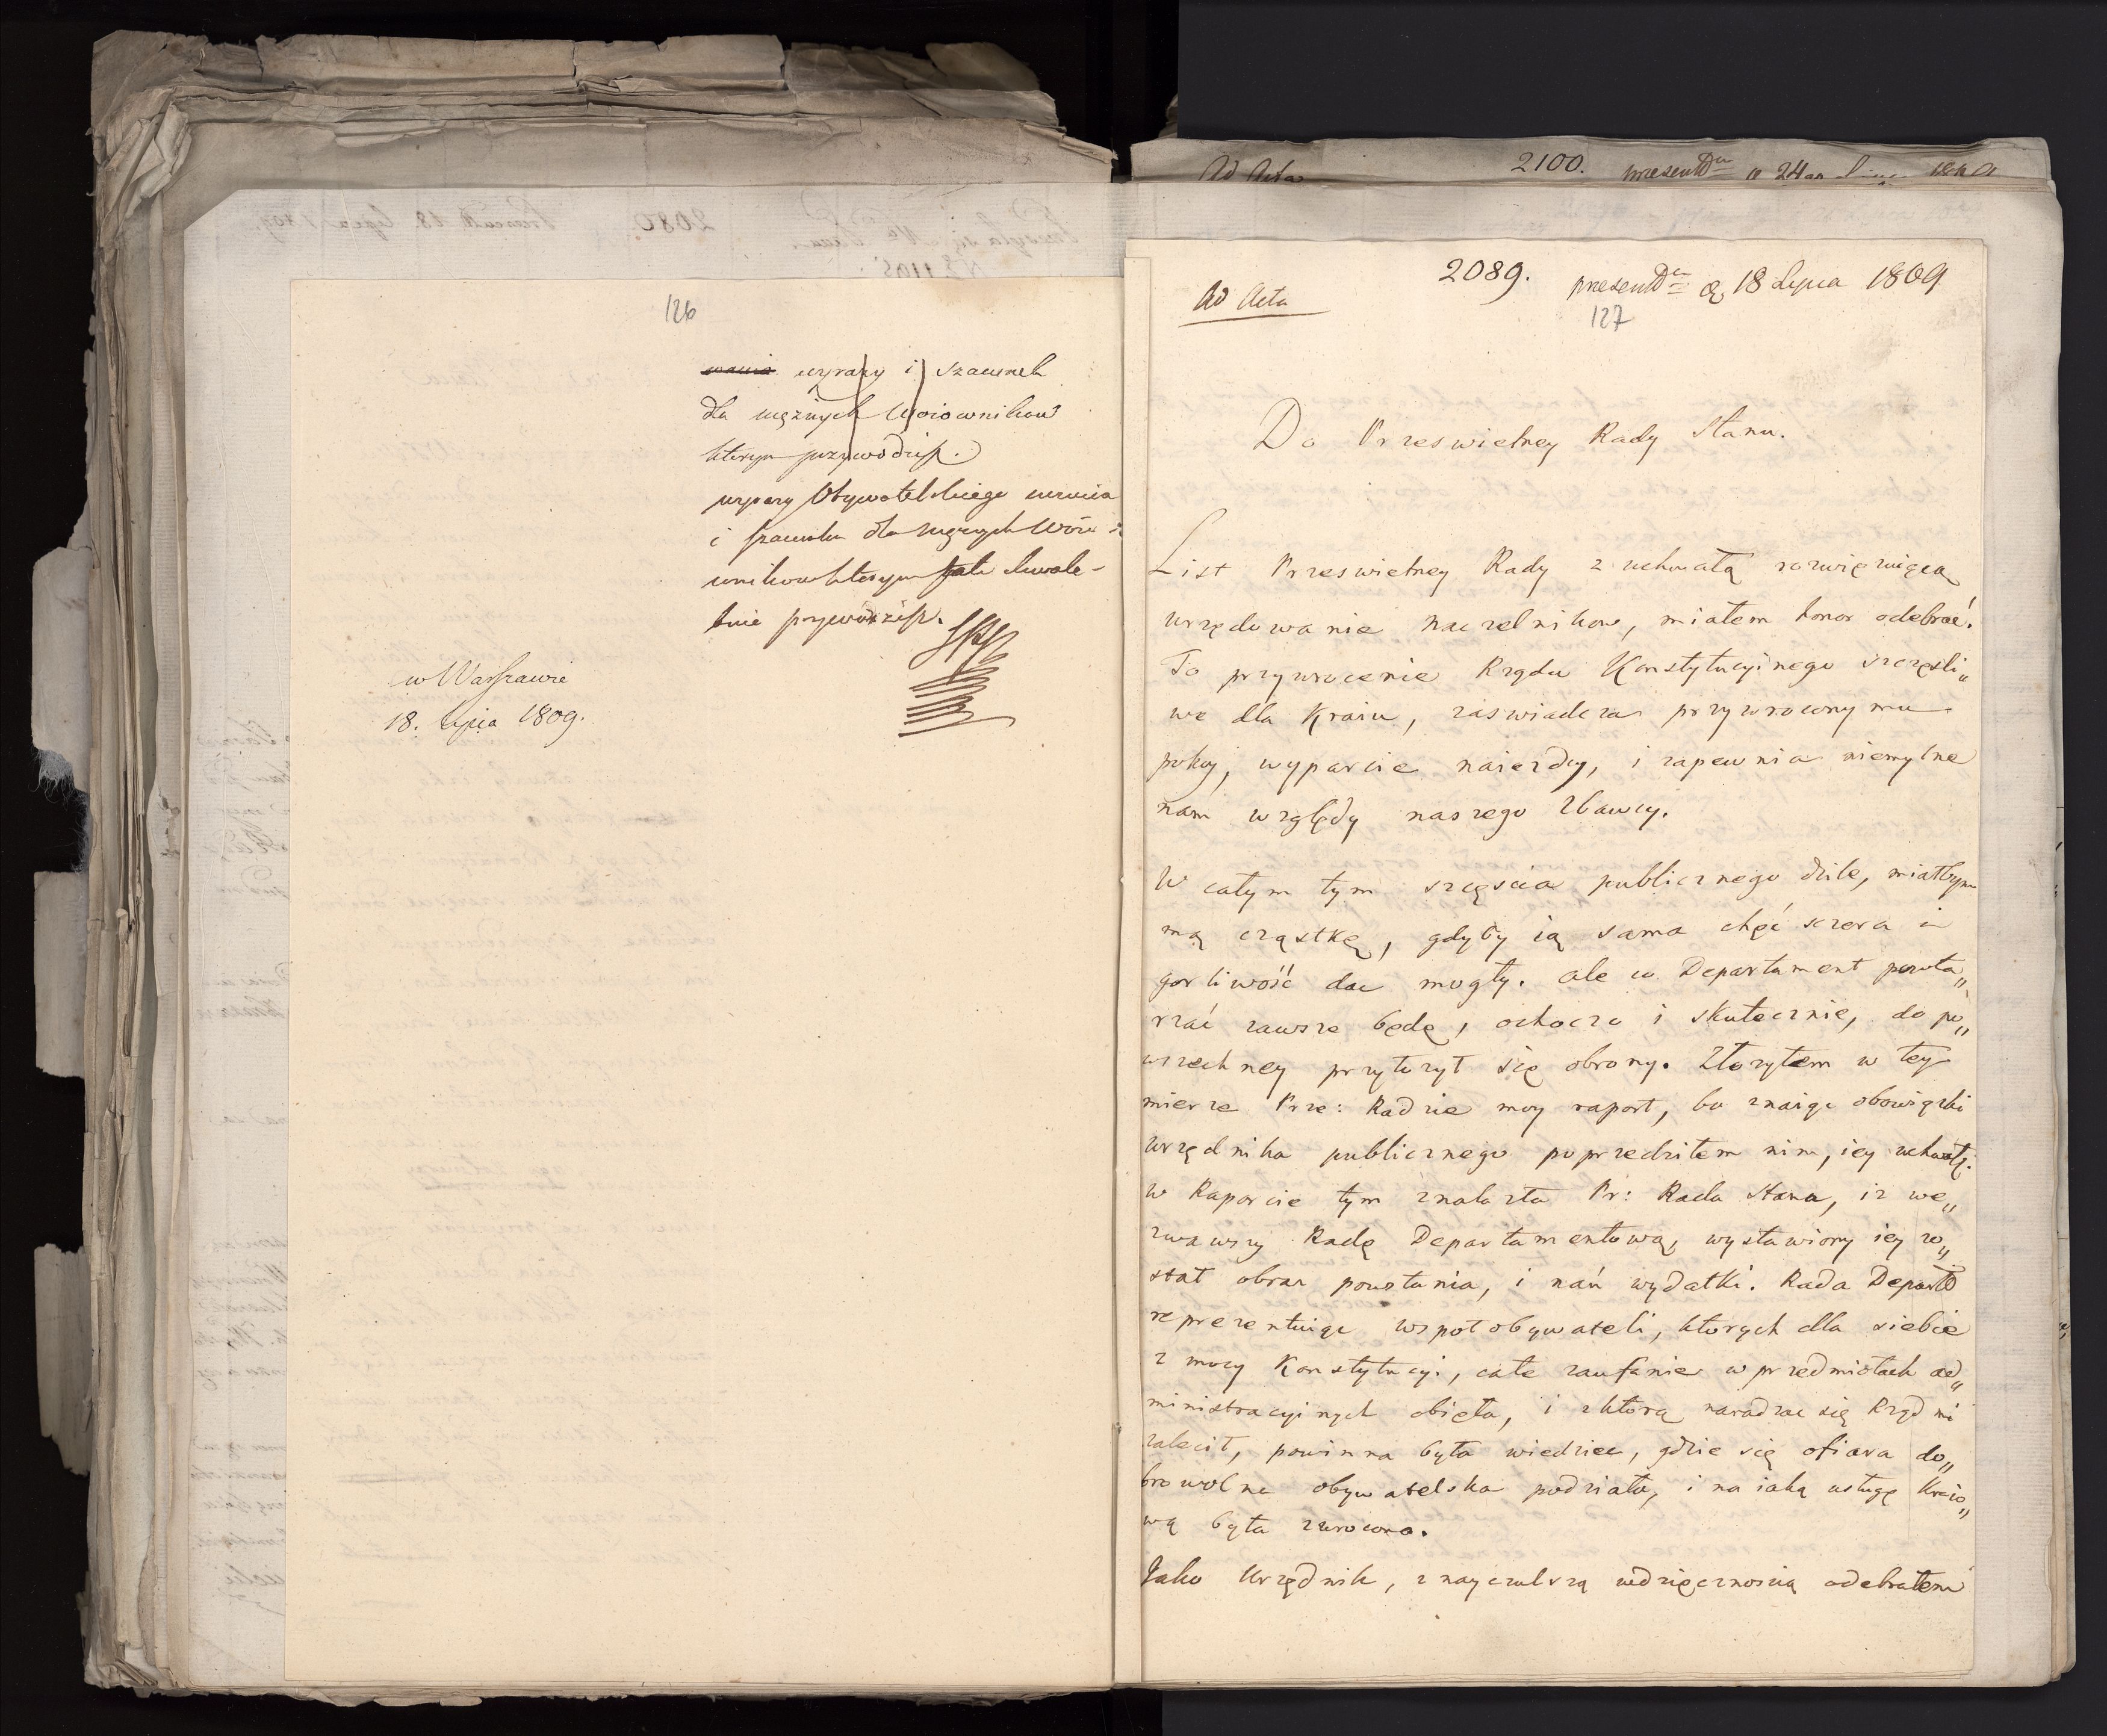 126
wania wyrazy i szacunek
dla mężnych Woiownikow
ktorym przywodzisz.
wyrazy Obywatelskiego
i szacunku dla mężnych Woio
wnikow ktorym tak chwale-
bnie przywodzisz.
w Warszawie
18. lipca 1809.
Ad Acta
2100.
Ad Acta
2089.
18 Lipca 1809
127
Do Przeswietney Rady Stanu.
List Przeswietney Rady z uchwałą rozwięzuiącą
urzędowanie naczelnikow, miałem honor odebrać.
To przywrocenie Rządu Konstytucyinego szczęśli„
we dla Kraiu, zaswiadcza przywrocony mu
pokoj, wyparcie naiezdcy, i zapewnia niemylne
nam względy naszego Zbawcy.
W całym tym szczęscia publicznego dziele, miałbym
mą cząstkę, gdyby ią sama chęć szczera i
gorliwość dac mogły. ale co Departament powta„
rzać zawsze będę, ochoczo i skutecznie, do po„
wszechney przyłożył się obrony. Złożyłem w tey
mierze Prze: Radzie moy raport, bo znaiąc obowiązki
urzędnika publicznego poprzedziłem nim, iey uchwałę.
w Raporcie tym znalazła Pr: Rada Stanu, iz we„
zwawszy Radę Departamentową, wystawiony iey zo„
stał obraz powstania, i nań wydatki. Rada Depart
reprezentuiąc wspołobywateli, ktorych dla siebie
z mocy Konstytucyi, całe zaufanie w przedmiotach ad„
ministracyinych obięła, i z ktorą naradzac się Rząd mi
zalecił, powinna była wiedziec, gdzie się ofiara do„
browolna obywatelska podziała, i na iaką usługę Kraio„
wą była zwrocona.
Jako Urzędnik, z nayczulszą wdzięcznoscią odebrałem